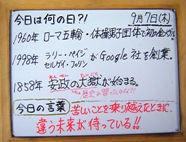 今日は何の日?!
9月7日(木)
1960年 ローマ五輪・体操男子団体で初の金メダル
1998年 ラリー・ペイジ セルゲイ・ブリン がGoogle社を創業。
1858年 安政の大獄が始まる。
今日の言葉 苦しいことを乗り越えたときに、
違う未来が待っている!!